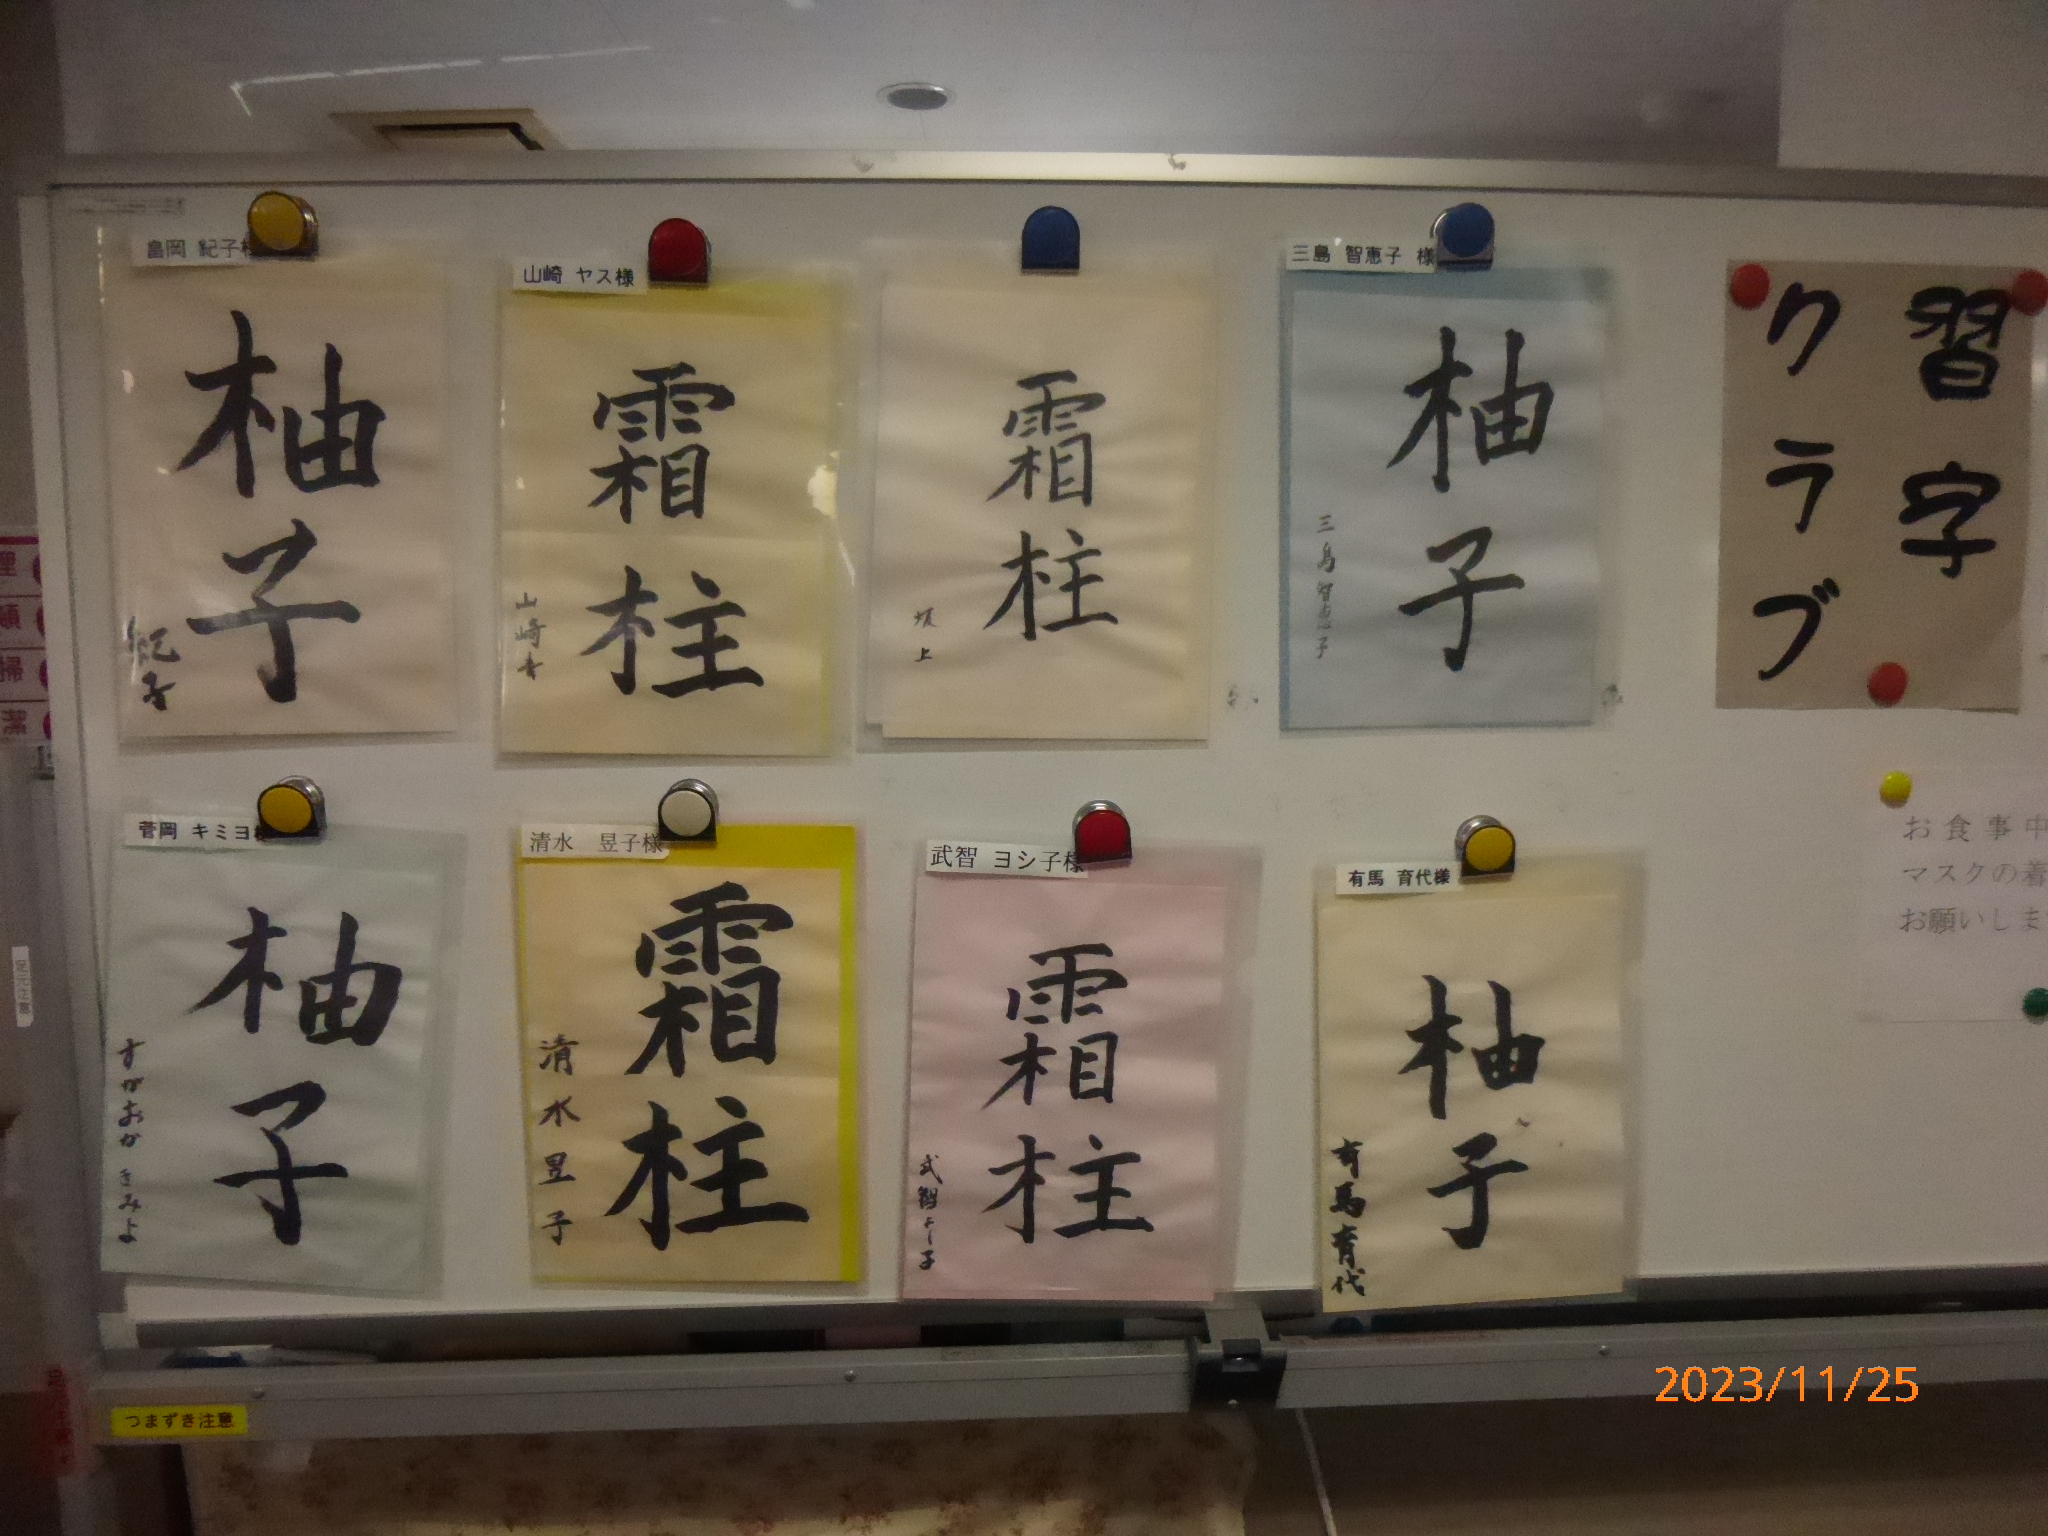 習字
クラブ
畠岡 紀子様
柚子
紀子
山崎 ヤス様
霜柱
山崎
霜柱
坂上
三島 智恵子 様
柚子
三島智恵子
菅岡 キミヨ様
柚子
すがおか きみよ
清水 昱子様
霜柱
清水昱子
武智 ヨシ子様
霜柱
武智よし子
有馬 育代様
柚子
有馬育代
お食事中
マスクの着
お願いしま
足元注意
つまずき注意
2023/11/25